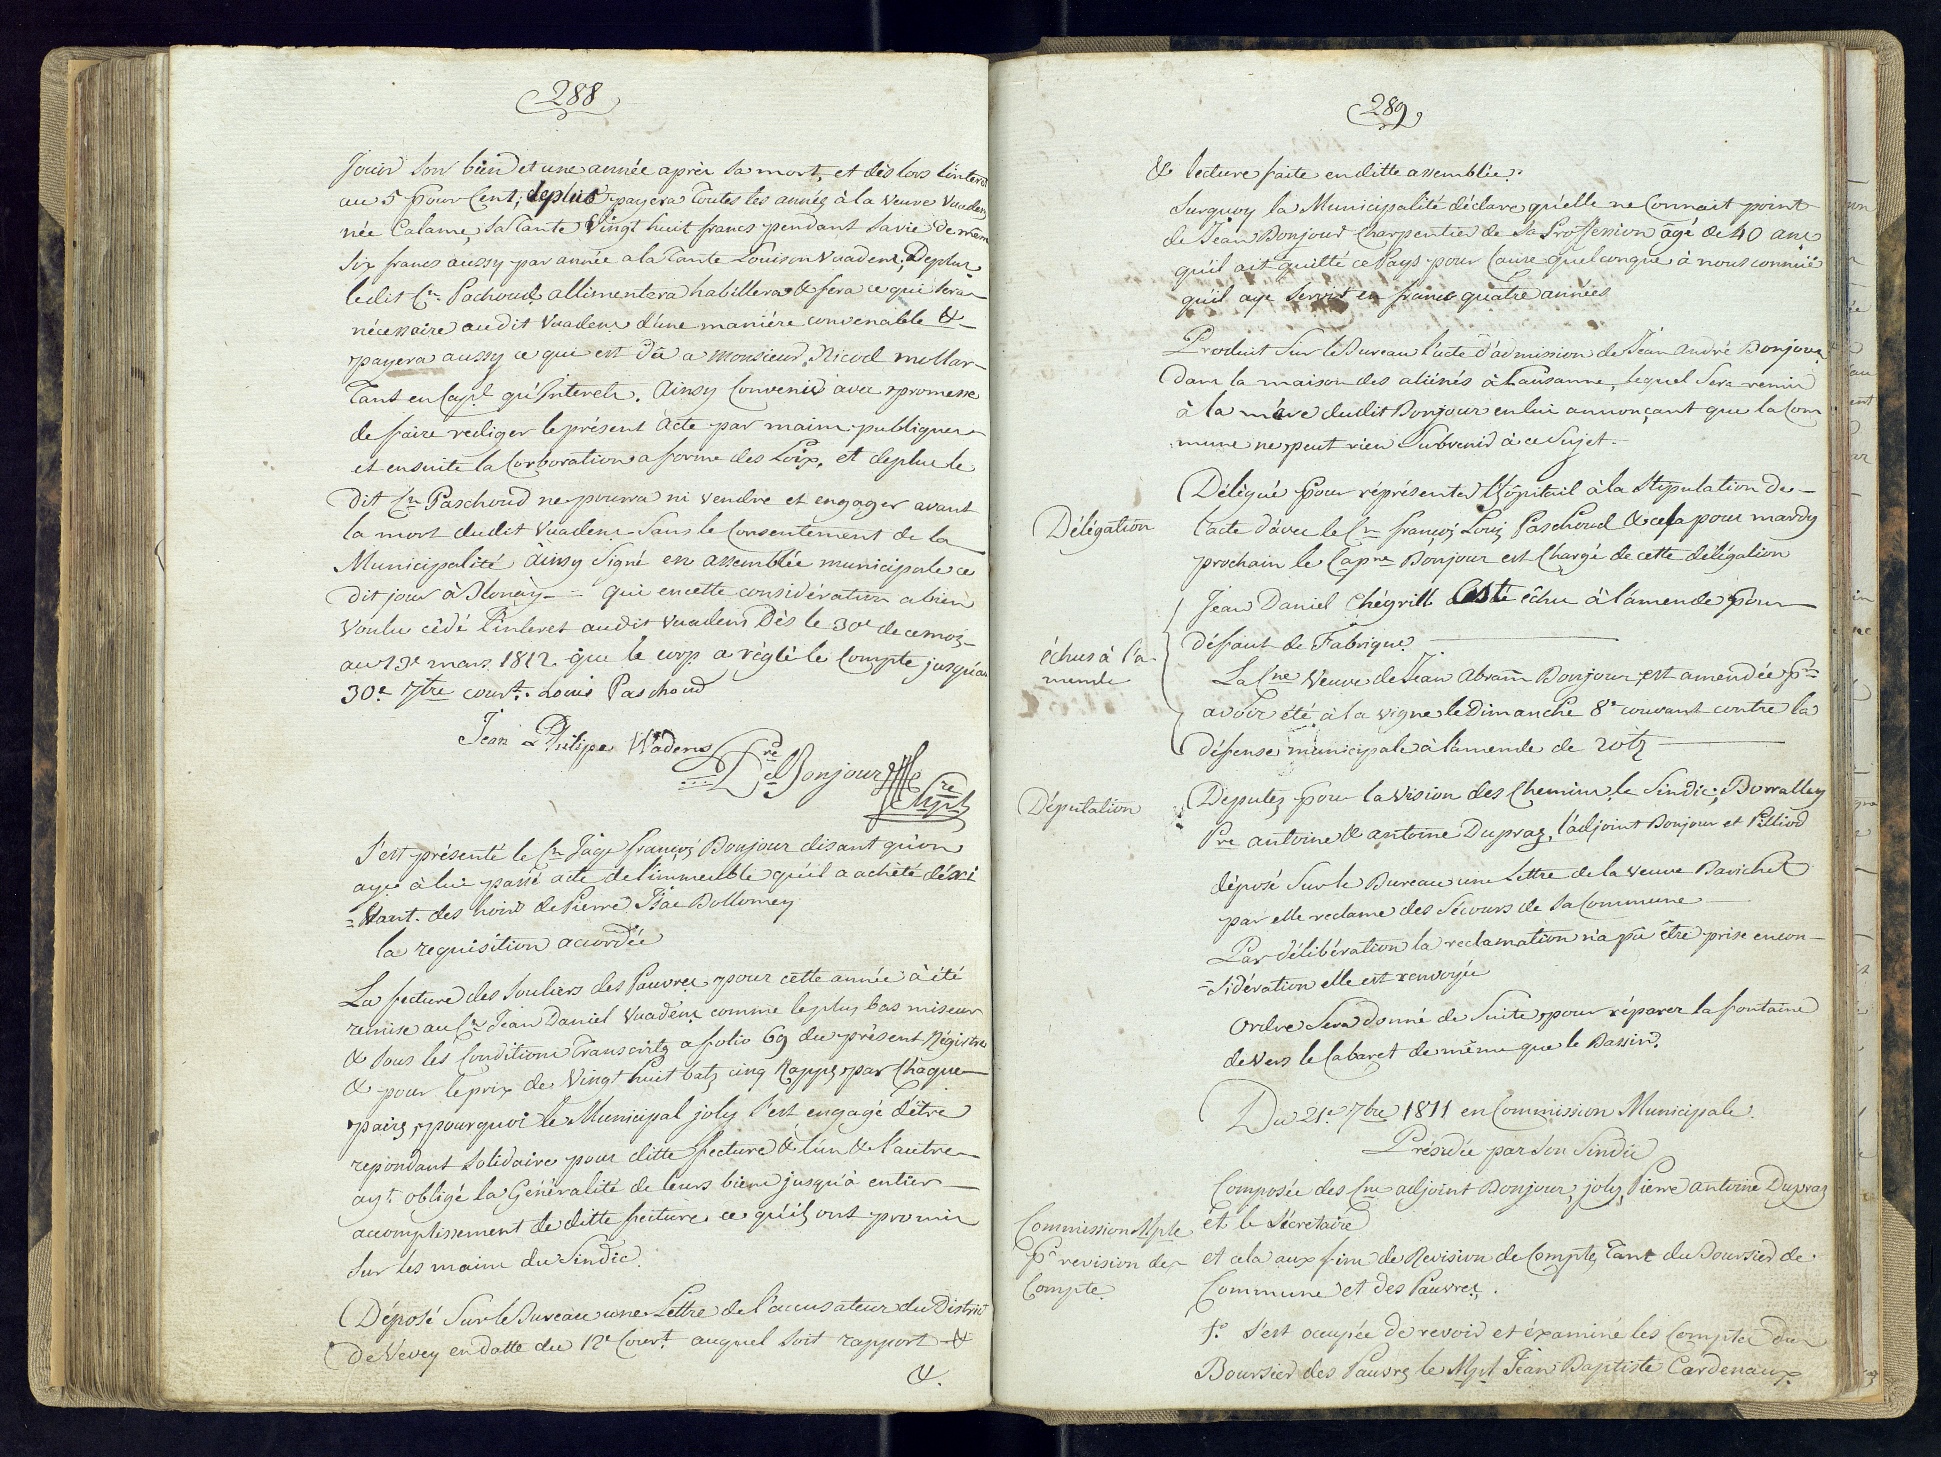 288
Jouir son bien et une année après sa mort, et dès lors l'interet
au 5 pour Cent; deplus payera toutes les années à la veuve Vuadens
née Calame, sa Tante Vingt huit francs pendant sa vie de même
Six francs aussy par année a la Tante Louison Vuadens; Deplus
ledit Cn. Pachoud allimentera habillera & fera ce qui sera
nécessaire audit Vuadens d'une manière convenable &
payera aussy ce qui est dû a Monsieur Nicod mollar
Tant en Capl. qu'Interets. Ainsy Convenu avec promesse
de faire rediger le présent Acte par mains publiques
et ensuite la Corboration a forme des Loix, et deplus le
dit Cn. Paschoud ne pourra ni vendre et engager avant
la mort dudit Vuadens Sans le Consentement de la
Municipalité ainsy signé en assemblée municipale ce
dit jour à Blonay = qui en cette considération a bien
voulu cédé l'interet audit Vuadens Dès le 30e. de ce mois
au 13e mars 1812 que le corp a réglé le Compte jusqu'au
30e. 7bre court. Louis Paschoud
Jean Philipe Wadens
Pre. Dl. Bonjour
S'est présenté le Cn. Juge françois Bonjour disant qu'on
aye à lui passé acte de l'immeuble qu'il a achété déxi
=stant. des hoirs de Pierre Isac Bollomey
la requisition acordée
La fecture des Souliers des Pauvres pour cette année à été
remise au Cn. Jean Daniel Vuadens comme le plus bas miseur
& sous les Conditions Transcrites a folio 69 du présent Régistre
& pour le prix de Vingt huit batz cinq Rappes par Chaque
paires, pourquoi le Municipal joly s'est engagé d'être
repondant Solidaire pour ditte fecture & l'un & l'autre
ayt. obligé la Généralité de leurs biens jusqu'à entier
acomplissement de ditte fecture ce qu'ils ont promis
Sur les mains du Sindic.
Déposé Sur le Bureau une Lettre de l'accusateur du District
De Vevey en datte du 12e Court. auquel soit rapport &
&.
289
& lecture faite en ditte assemblée.
Surquoy la Municipalité déclare qu'elle ne Connait point
de Jean Bonjour Charpentier de Sa Proffession âgé de 40 ans
qu'il ait quitté ce Pays pour Cause quelconque à nous connüe
qu'il aye Servit en france quatre années
Produit Sur le Bureau l'acte d'admission de Jean André Bonjour
Dans la maison des aliénés à Lausanne, lequel Sera remis
à la mère dudit Bonjour en lui annonçant que la Com
mune ne peut rien Subvenir à ce Sujet.
Délégation
Délégué pour réprésenter l'hôpitail à la Stipulation de
l'acte d'avec le Cn. françois Louis Paschoud & cela pour mardy
prochain le Capne Bonjour est Chargé de cette délégation
échus à l'a
mende
Jean Daniel Chégrill a été échu à l'amende pour
défaut de Fabrique.
La Cne Veuve de Jean Abram Bonjour est amendée pr.
avoir été à la vigne le Dimanche 8e. courant contre la
défense municipale à l'amende de 20 btz
Députation
Deputés pour la Vision des Chemins le Sindic; Borralley
Pre antoine & antoine Dupraz, l'adjoint Bonjour et Pilliod
déposé Sur le Bureau une Lettre de la veuve Bavichet
par elle reclame des Sécours de Sa Commune
Par délibération la reclamation n'a pu être prise en con
=sidération elle est renvoyée
Ordre Sera donné de Suite pour réparer la fontaine
devers le Cabaret de même que le Bassin.
Du 21e. 7bre 1811 en Commission Municipale.
Présidée par Son Sindic
Composée des Cns adjoint Bonjour, joly, Pierre antoine Dupraz
et le Sécretaire
Commission Mple
pr. revision de
Compte.
et cela aux fins de Revision de Comptes Tant du Boursier de
Commune et des Pauvres.
1o. S'est ocupée de revoir et éxaminé les Comptes du
Boursier des Pauvres le Mpl Jean Baptiste Cardenaux